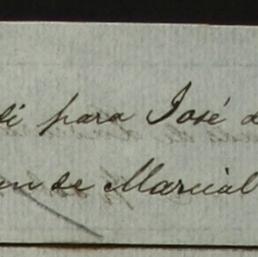 di para José d
en de Marcial